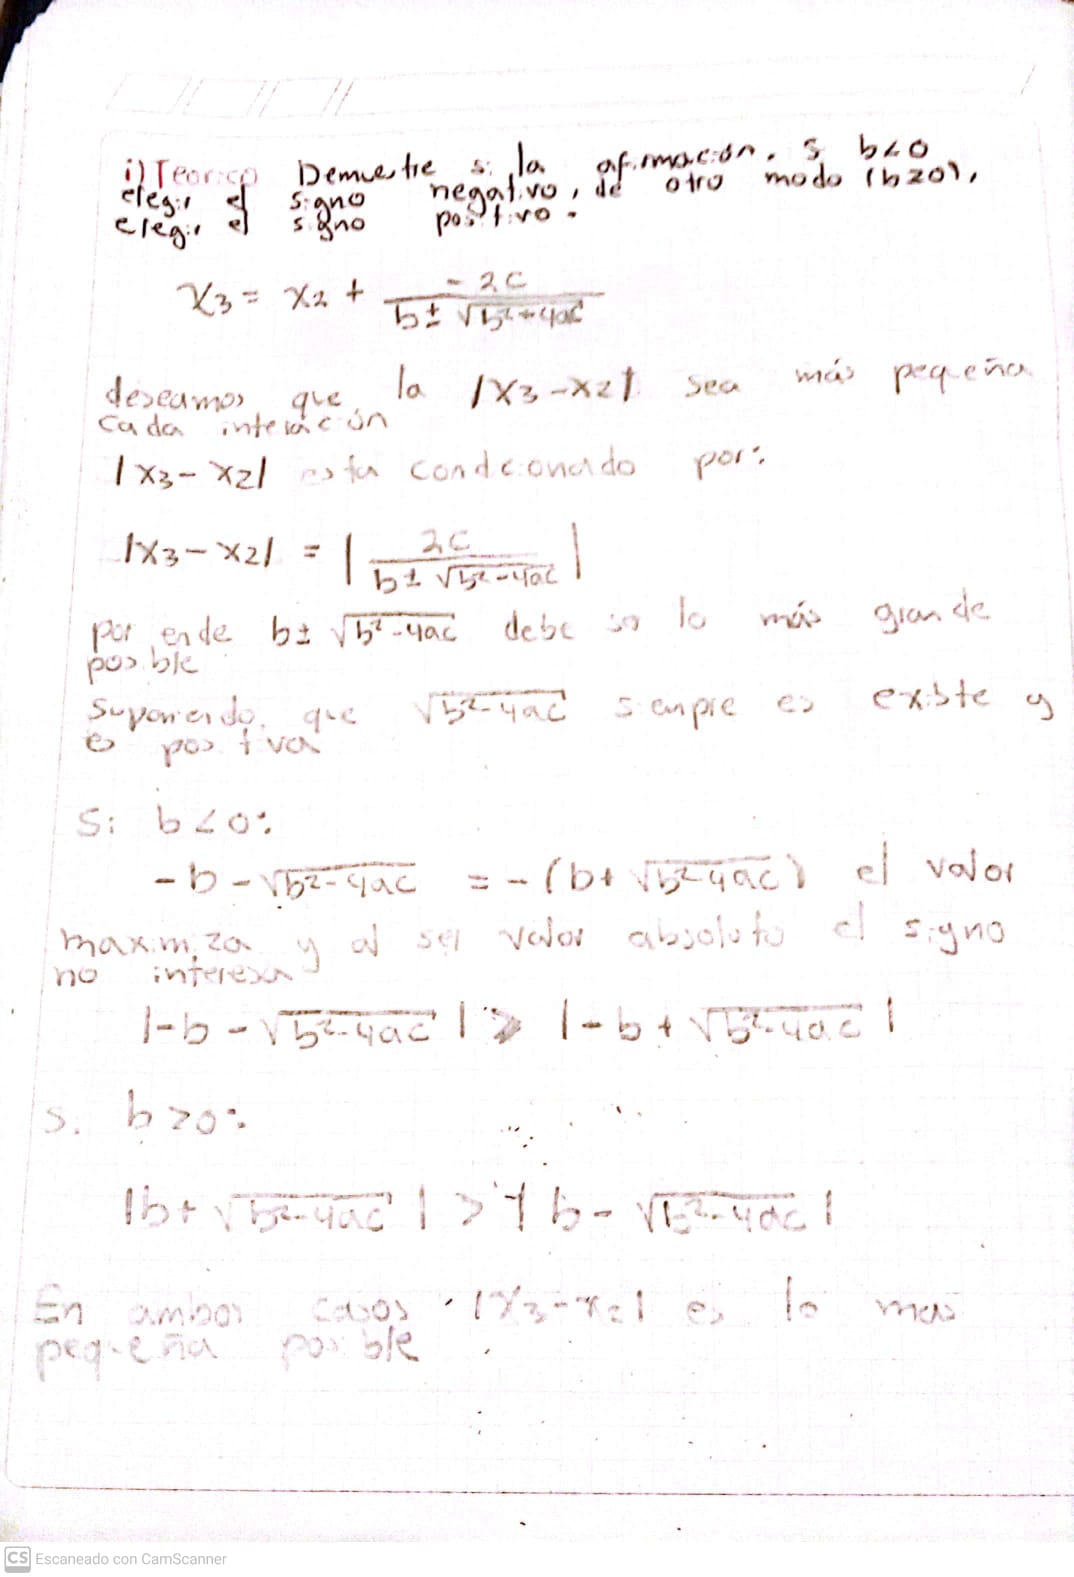 i) Teorico Demuestre si la afirmación, si b<0
elegir el signo negativo, de otro modo (b≥0),
elegir el signo positivo.
x3 = x2 + -2c / b ± √b²+4ac
deseamos que la |x3-x2| sea más pequeña
cada interación
|x3-x2| esta condicionado por:
|x3-x2| = | 2c / b ± √b²-4ac |
por ende b± √b²-4ac debe ser lo más grande
posible
Suponiendo que √b²-4ac siempre es existe y
es positiva
Si b<0:
-b-√b²-4ac = -(b+√b²-4ac) el valor
maximiza y al ser valor absoluto el signo
no interesa
|-b-√b²-4ac| > |-b+√b²-4ac|
Si b>0:
|b+√b²-4ac| > |b-√b²-4ac|
En ambos casos |x3-x2| es lo mas
pequeña posible
CS Escaneado con CamScanner